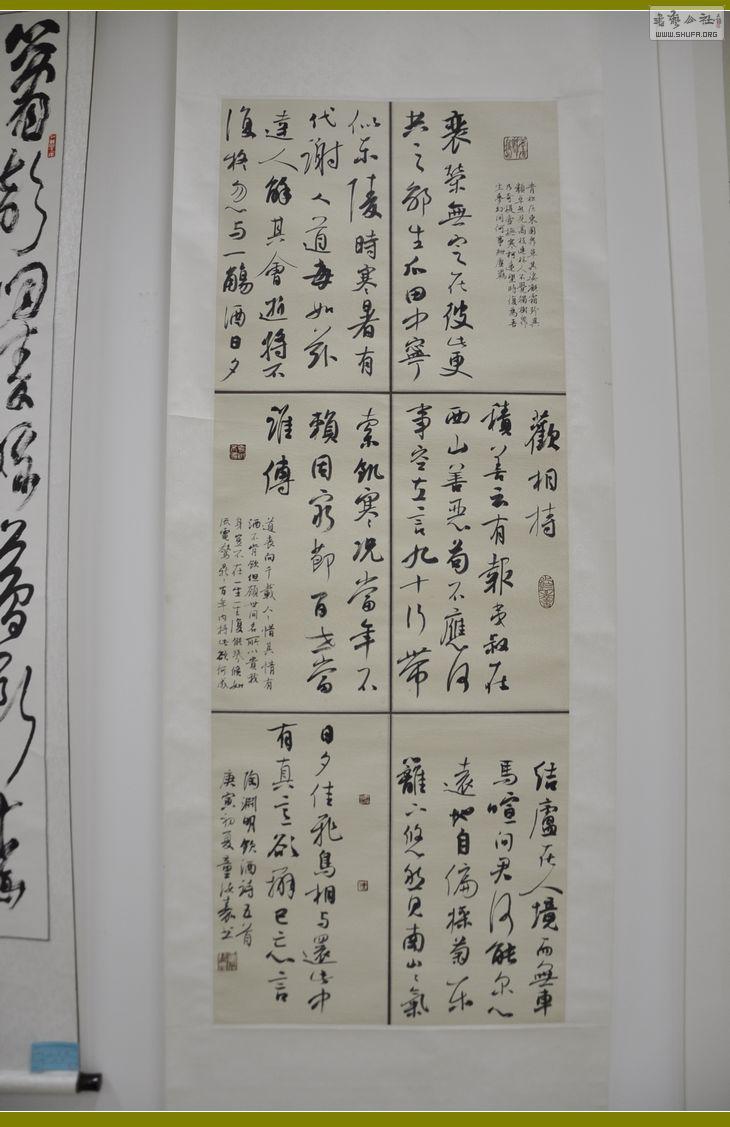 書藝公社
WWW.SHUFA.ORG
衰榮無定在彼此更
共之邵生瓜田中寧
似東陵時寒暑有
代謝人道每如茲
達人解其會逝將不
復疑忽與一觴酒日夕
歡相持
青松在東園衆草其姿凝霜殄異
類卓然見高枝連林人不覺獨樹衆
乃奇提壺撫寒柯遠望時復爲吾
生夢幻間何事紲塵羈
積善云有報夷叔在
西山善惡苟不應何
事空立言九十行帶
索飢寒況當年不
賴固窮節百世當
誰傳
道喪向千載人人惜其情有
酒不肯飲但顧世間名所以貴我
身豈不在一生一生復能幾倏如
流電驚鼎鼎百年内持此欲何成
結廬在人境而無車
馬喧問君何能爾心
遠地自偏採菊東
籬下悠然見南山山氣
日夕佳飛鳥相與還此中
有真意欲辯已忘言
陶淵明飲酒詩五首
庚寅初夏董